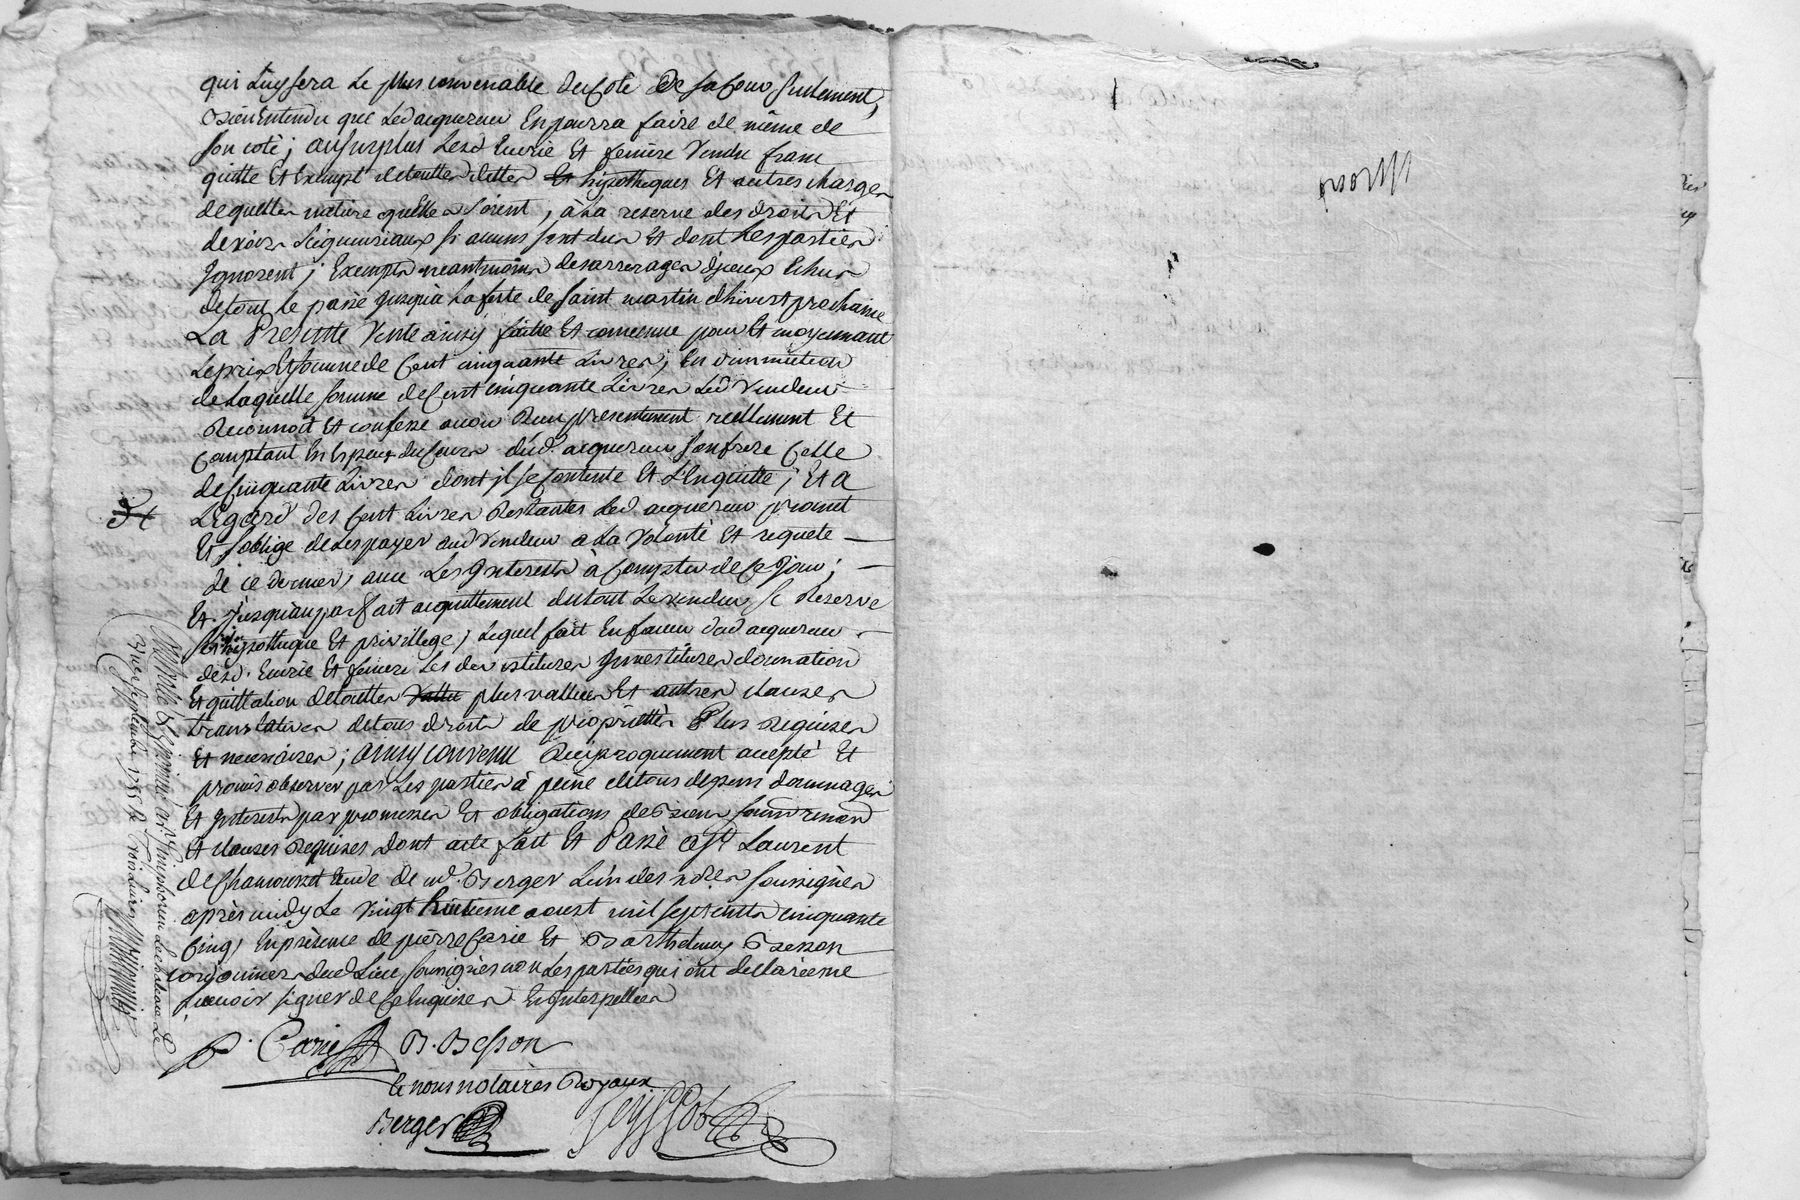 qui Luy sera Le plus convenable du Coté de sa Cour seulement,
Bien Entendu que Led acquereur En pourra faire de même de
son coté; au surplus Lesd Ecurie Et feniere Vendu franc
quitte Et Exempt de touttes dettes hipotheques Et autres charges
de quelles nature quelles soient, à La reserve des droits Et
devoirs seigneuriaux si aucuns sont dus Et dont Les parties
Ignorent; Exempts neantmoins des arrerages d'jceux Echus
de tout Le passé Jusqu'à La feste de saint martin d'hiver prochaine
La Presente Vente ainsy faitte Et convenue pour Et moyennant
Le prix Et somme de Cent cinquante Livres; En diminution
de Laquelle somme de Cent cinquante Livres Led Vendeur
Reconnoit Et confesse avoir Reçu presentement reellement Et
Comptant En Especes du Cours dud. acquereur son frere Celle
de Cinquante Livres dont jl se Contente Et L'Enquitte; Et a
L'Egard des Cent Livres Restantes Led acquereur promet
Et s'oblige de Les payer aud Vendeur a La Volonté Et requete
de ce dernier, avec Les Interests à Compter de Ce Jour;
Et Jusqu'au parfait acquittement du tout Le vendeur se Reserve
hipotheque Et privillege; Lequel fait En faveur dud acquereur
desd. Ecurie Et feniere Les devestitures Jnvestitures donnation
Et quittation de touttes plus vallues Et autres clauses
translatives de tous droits de proprietté Plus Requises
Et necessaires; ainsy convenu Reciproquement accepté Et
promis observer par Les parties à peine de tous depens dommages
Et Interests par promesses Et obligations de Biens
Et clauses Requises dont acte fait Et Passé a St Laurent
de Chamousset Etude de me. Berger L'un des nores soussignés
après midy Le vingt huitieme aoust mil sept cents cinquante
Cinq, En présence de pierre Carie Et Barthelemy Besson
cordonniers dud Lieu soussignés non Les parties qui ont declaré ne
sçavoir signer de Ce Enquises Et Interpellées
P. Carie B. Besson
Le nous notaires Royaux
Berger
Controllé
septembre 1755